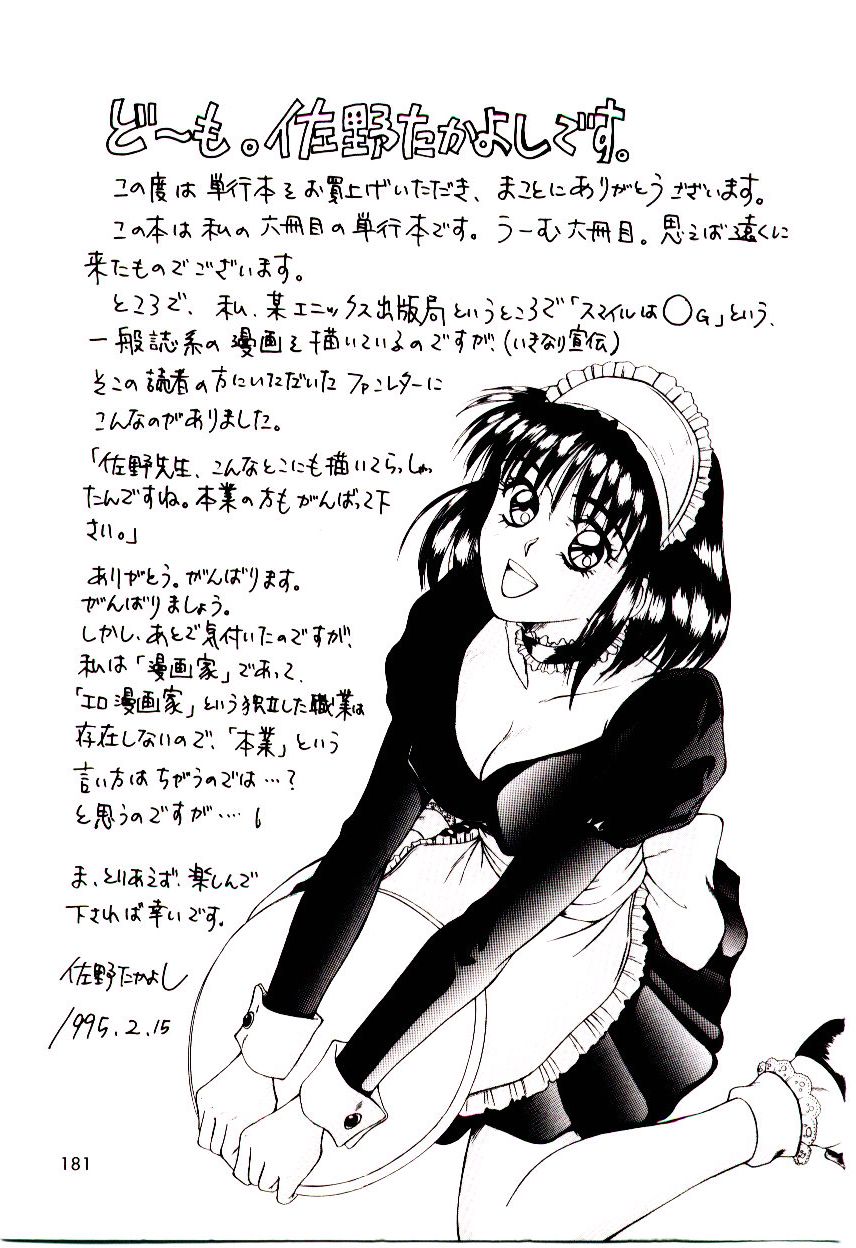 ど〜も。佐野たかよしです。
この度は単行本をお買上げいただき、まことにありがとうございます。
この本は私の六冊目の単行本です。うーむ六冊目。思えば遠くに
来たものでございます。
ところで、私、某エニックス出版局というところで「スマイルは○G」という、
一般誌系の漫画を描いているのですが、(いきなり宣伝)
そこの読者の方にいただいたファンレターに
こんなのがありました。
「佐野先生、こんなとこにも描いてらっしゃっ
たんですね。本業の方もがんばって下
さい。」
ありがとう。がんばります。
がんばりましょう。
しかし、あとで気付いたのですが、
私は「漫画家」であって、
「エロ漫画家」という独立した職業は
存在しないので、「本業」という
言い方はちがうのでは…?
と思うのですが…。
ま、とりあえず、楽しんで
下されば幸いです。
佐野たかよし
1995.2.15
181